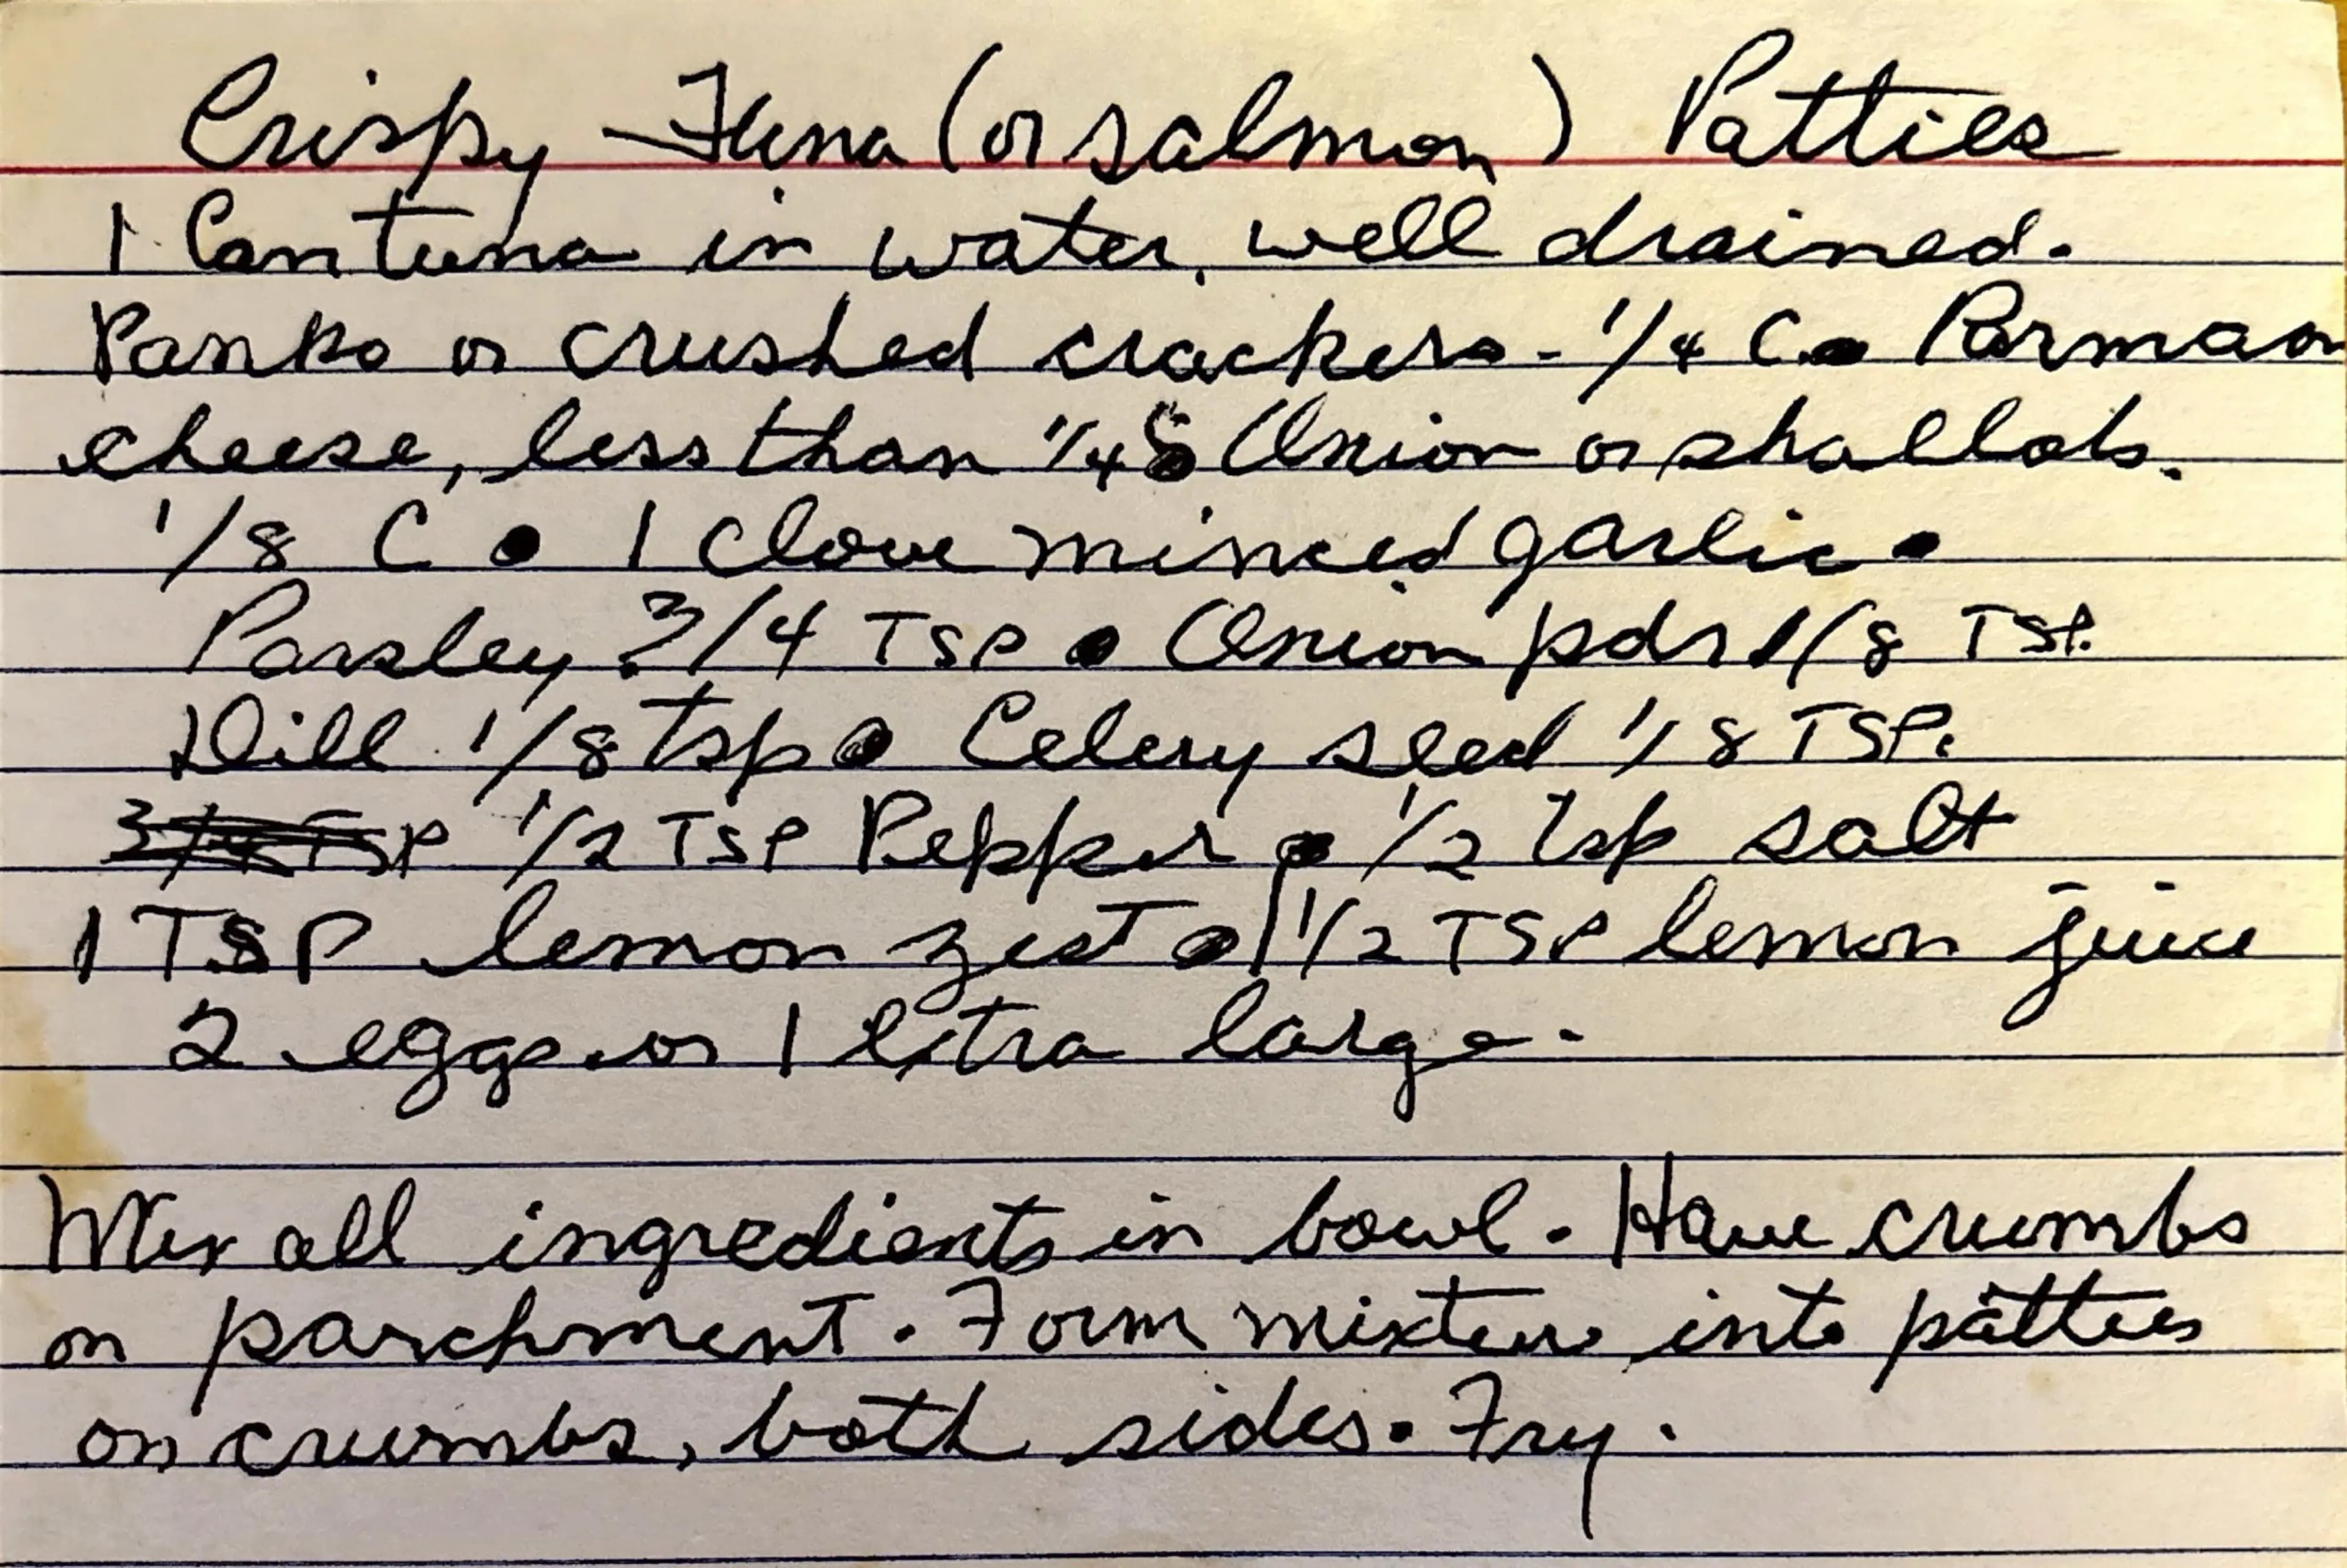 Crispy Tuna (or salmon) Patties
1 Can tuna in water, well drained.
Panko or crushed crackers - 1/4 C • Parman
cheese, less than 1/4 Onion or shallots.
1/8 C • 1 clove minced garlic •
Parsley 3/4 TSP • Onion pdr 1/8 TSP.
Dill 1/8 tsp • Celery seed 1/8 TSP.
3/4 TSP 1/2 TSP Pepper • 1/2 tsp salt
1 TSP lemon zest • 1 1/2 TSP lemon juice
2 eggs or 1 extra large.
Mix all ingredients in bowl. Have crumbs
on parchment. Form mixture into patties
on crumbs, both sides. Fry.